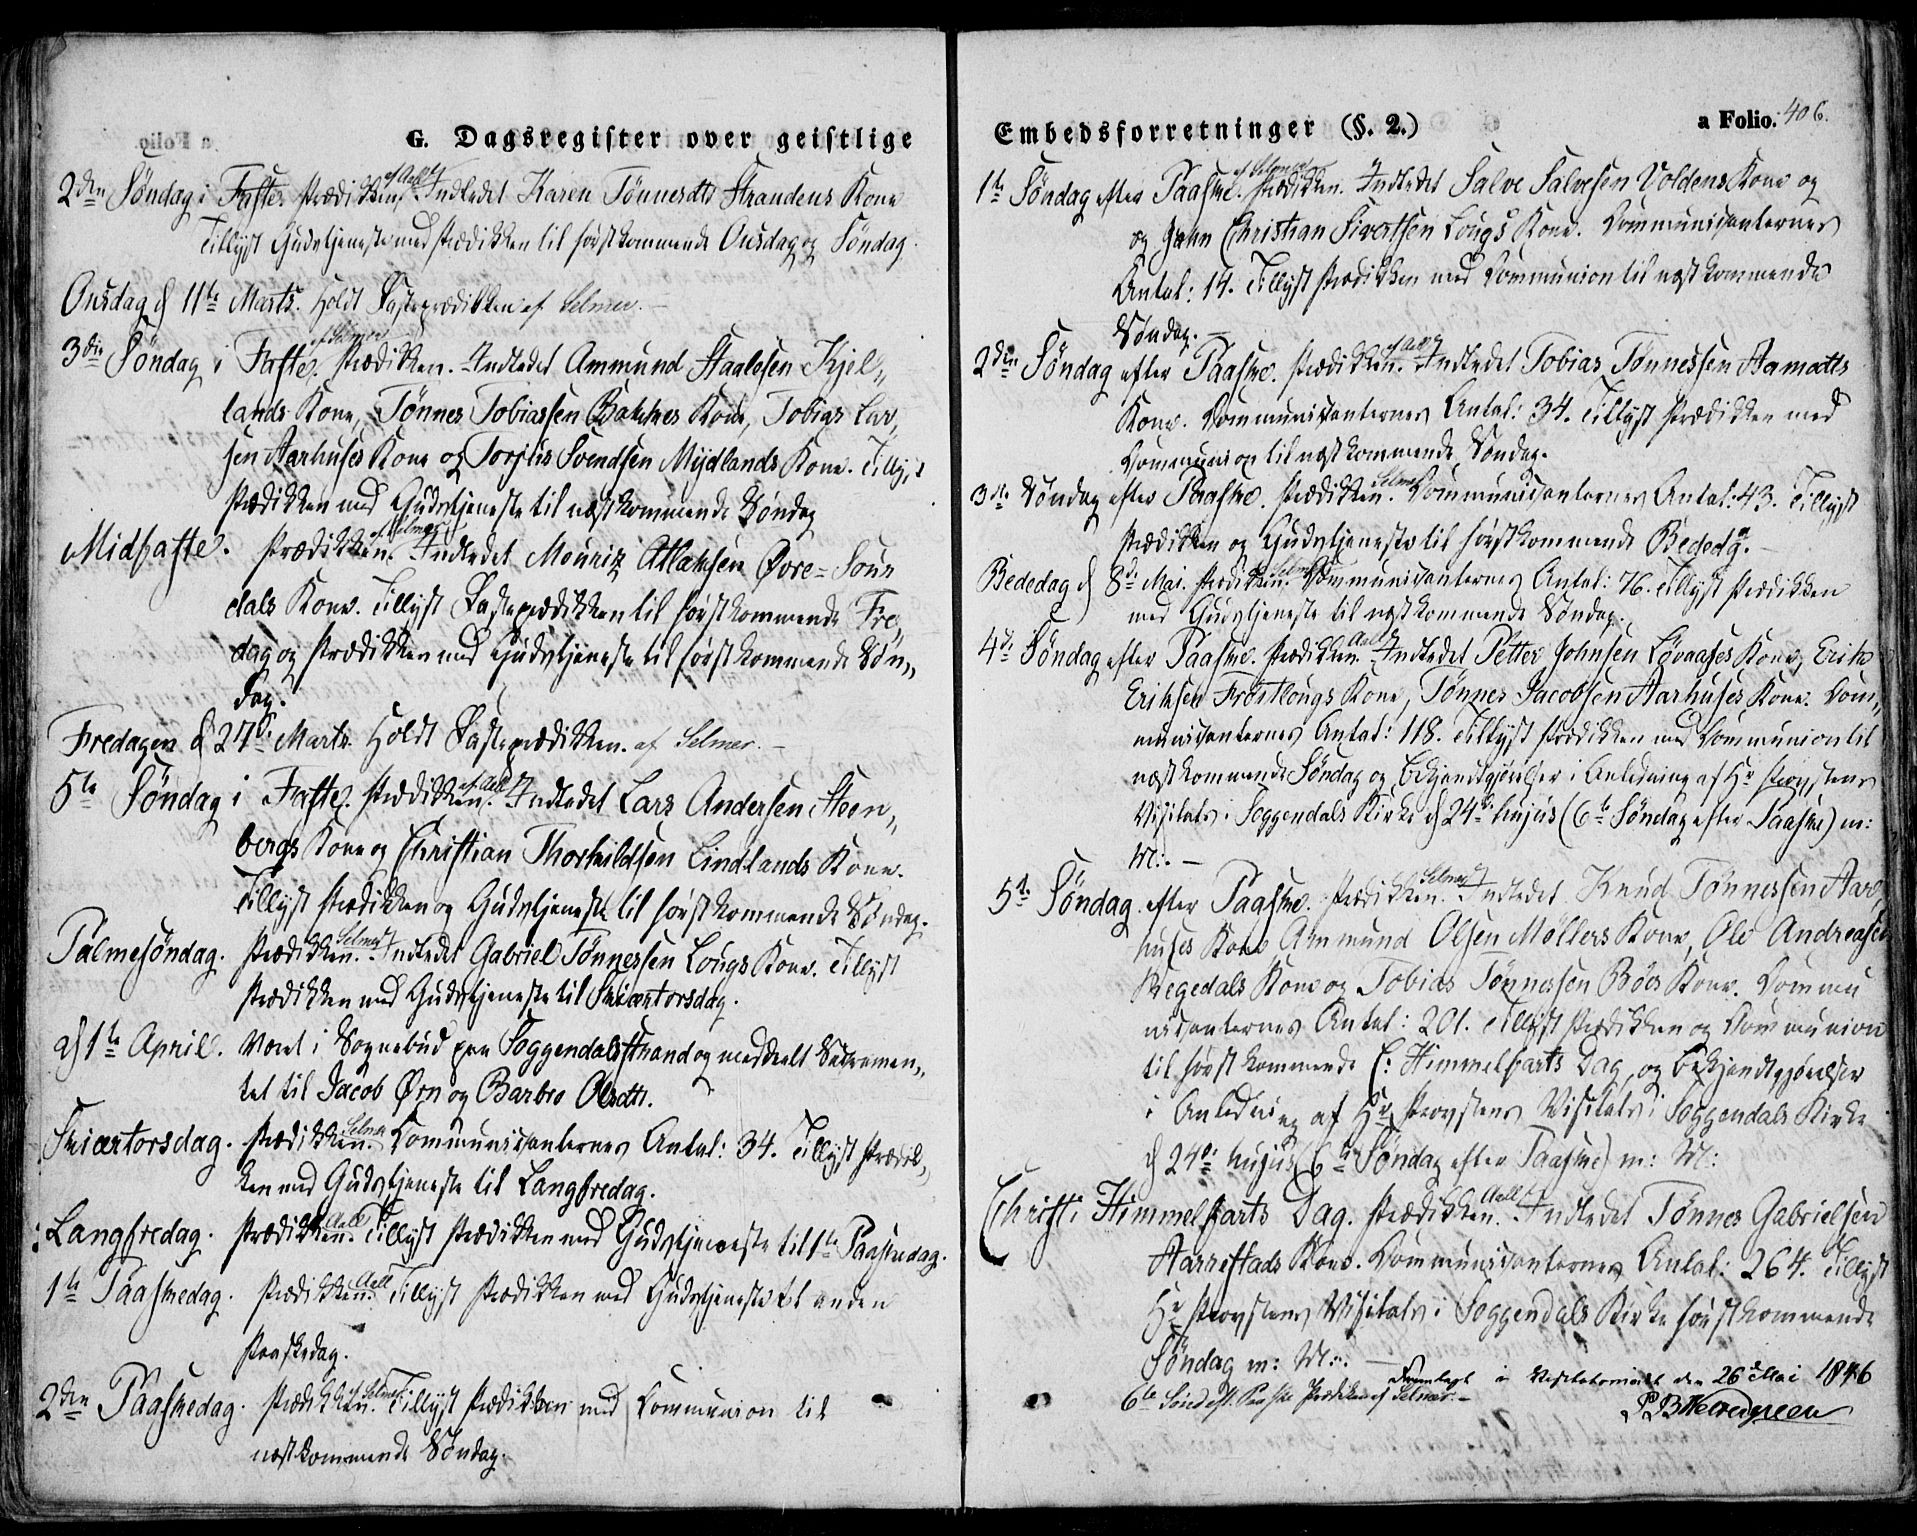 G. Dagsregister over geistlige
2den Søndag i Faste. Prædiken af Aall. Indledet Karen Tønnesdtr Strandens Kone
Tillyst Gudstjeneste med Prædikken til førstkommende Onsdag og Søndag.
Onsdag d 11te Marts. Holdt Fasteprædikken af Selmer.
3die Søndag i Faste. Prædikken af Selmer. Indledet Ammund Staalesen Kjel„
lands Kone, Tønnes Tobiassen Bakkes Kone, Tobias Lar„
sen Aarhuses Kone og Torjus Svendsen Mydlands Kone. Tillyst
Prædikken med Gudstjeneste til næstkommende Søndag
Midfaste. Prædikken af Selmer. Indledet Mouritz Atlaksen Øvre-Soun
dals Kone. Tillyst Fasteprædikken til førstkommende Fre„
dag og Prædikken med Gudstjeneste til førstkommende Søn„
dag.
Fredagen d 27de Marts. Holdt Fasteprædikken af Selmer. –
5te Søndag i Faste. Prædikken af Aall. Indledet Lars Andersen Steen„
bergs Kone og Christian Thorkildsen Lindlands Kone.
Tillyst Prædikken og Gudstjeneste til førstkommende Søndag.
Palmesøndag. Prædikken Selmer. Indledet Gabriel Tønnessen Lougs Kone. Tillyst
Prædikken med Gudstjeneste til Skiærtorsdag.
d 1te April. Været i Sognebud paa Soggendalsstrand og meddeelt Sacramen„
tet til Jacob Ørn og Barbro Olsdtr.
Skiærtorsdag. Prædikken Selmer. Communicanternes Antal: 34. Tillyst Prædik„
ken med Gudstjeneste til Langfredag.
Langfredag. Prædikken Aall. Tillyst Prædikken med Gudstjeneste til 1te Paaskedag.
1te Paaskedag. Prædikken Aall. Tillyst Prædikken med Gudstjeneste til anden
Paaskedag.
2den Paaskedag. Prædikken af Selmer. Tillyst Prædikken med Communion til
næstkommende Søndag.
Embedsforretninger (§. 2.)
a Folio. 406.
1te Søndag efter Paaske. Prædikken af Selmer. Indledet Salve Salvesen Voldens Kone og
og John Christian Sivertsen Lougs Kone. Communicanternes
Antal: 14. Tillyst Prædikken med Communion til næstkommende
Søndag. –
2den Søndag efter Paaske. Prædikken af Aall. Indledet Tobias Tønnessen Aamodts
Kone. Communicanternes Antal: 34. Tillyst Prædikken med
Communion til næstkommende Søndag.
3die Søndag efter Paaske. Prædikken Selmer. Communicanternes Antal: 43. Tillyst
Prædikken og Gudstjeneste til førstkommende Bededag. –
Bededag d 8de Mai. Prædikken Selmer. Communicanternes Antal: 76. Tillyst Prædikken
med Gudstjeneste til næstkommende Søndag.
4de Søndag efter Paaske. Prædikken Aall. Indledet Petter Johnsen Løvaases Kone, Erik
Eriksen Frøitlougs Kone, Tønnes Jacobsen Aarhuses Kone. Com„
municanternes Antal: 118. Tillyst Prædikken med Communion til
næstkommende Søndag og bekjendtgjørelser i Anledning af Hr Provstens
Visitats i Soggendals Kirke d 24de hujus (6te Søndag efter Paaske) m:
M:. –
5te Søndag efter Paaske. Prædikken Selmer. Indledet Knud Tønnessen Aar„
huses Kone Ammund Olsen Møllers Kone, Ole Andreasen
Regedals Kone og Tobias Tønnessen Bøes Kone. Commu
nicanternes Antal: 201. Tillyst Prædikken og Communion
til førstkommende C: Himmelfarts Dag, og bekjendtgjørelser
i Anledning af Hr Provstens Visitats i Soggendals Kirke
d 24de hujus (6te Søndag efter Paaske) m: M:
Christi Himmelfarts Dag. Prædikken Aall. Indledet Tønnes Gabrielsen
Aarrestads Kone. Communicanternes Antal: 264. Tillyst
Hr Provstens Visitats i Soggendals Kirke førstkommende
Søndag m: M:. –
Fremlagt i Visitatsmødet den 26de Mai 1846
6te Sønd. eft. Paaske Prædiken af Selmer. –